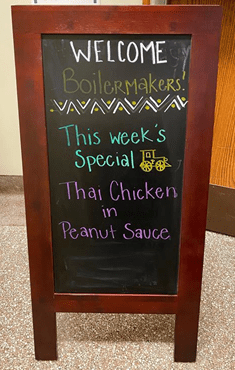 WELCOME
Boilermakers.
This week's
Special
Thai Chicken
in
Peanut Sauce